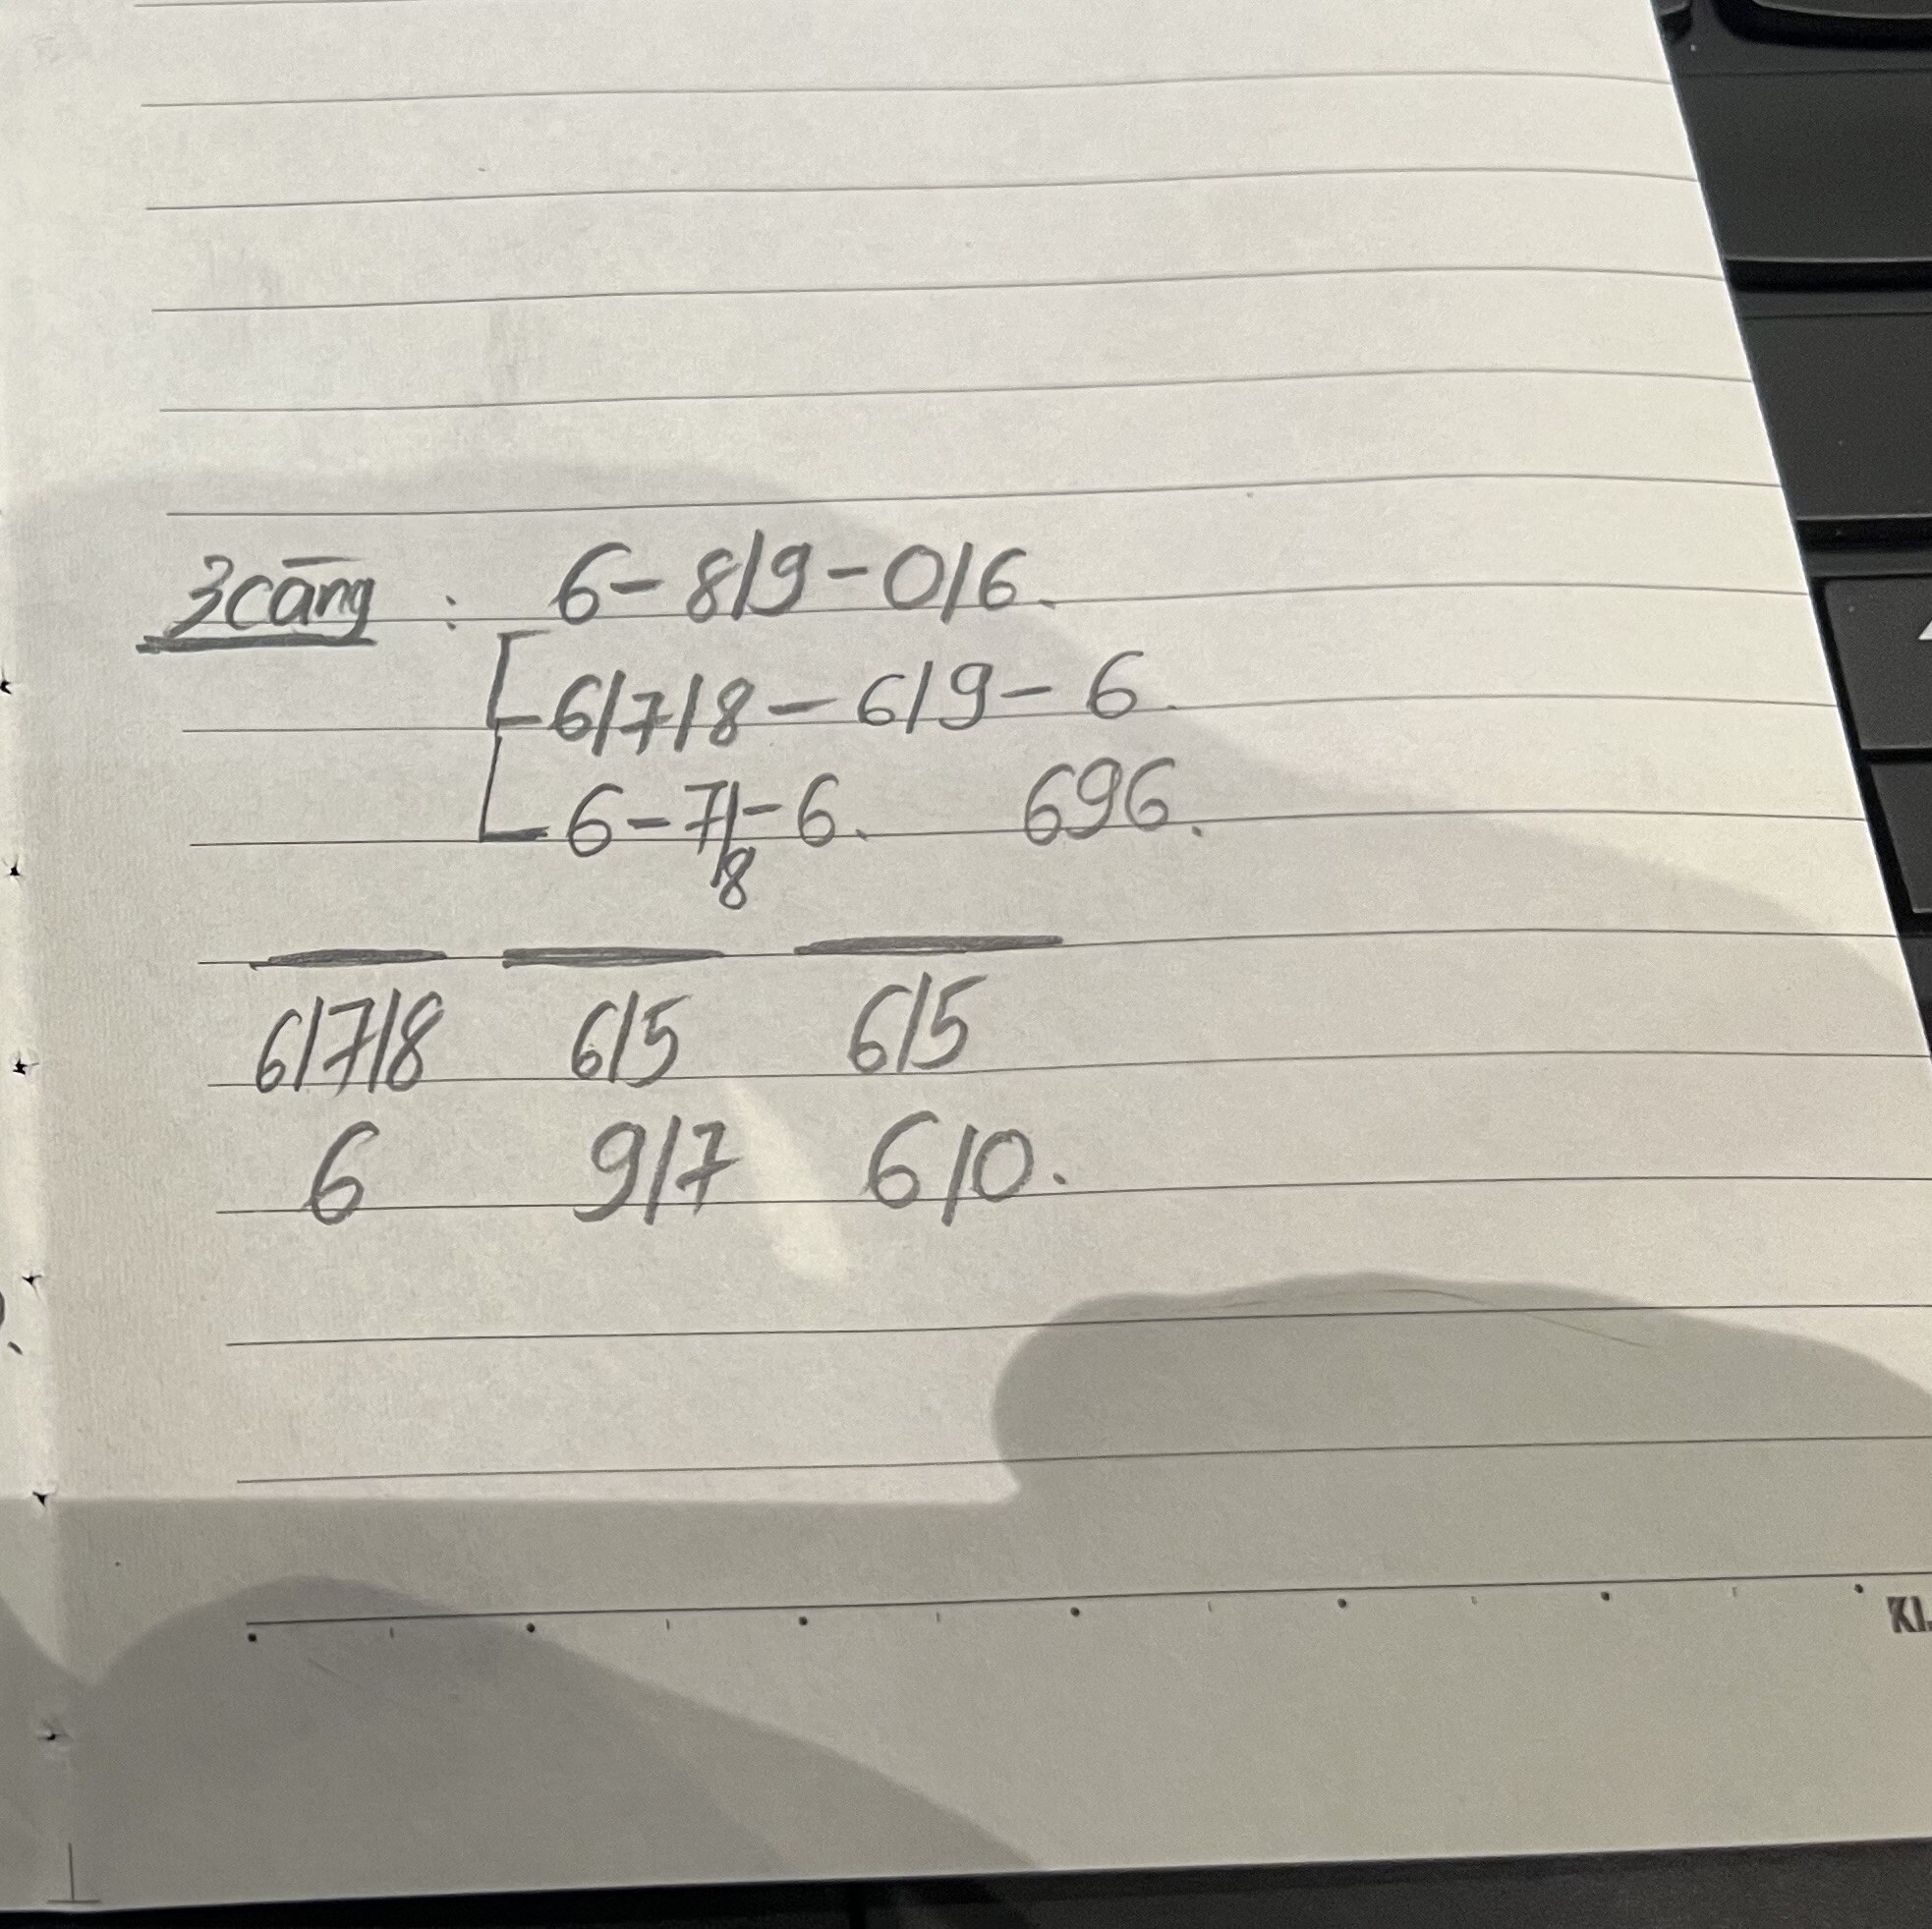 3 cāng : 6 - 8/9 - 0/6.
6/7/8 - 6/9 - 6.
6 - 7/8 - 6. 696.
6/7/8 6/5 6/5
6 9/7 6/0.